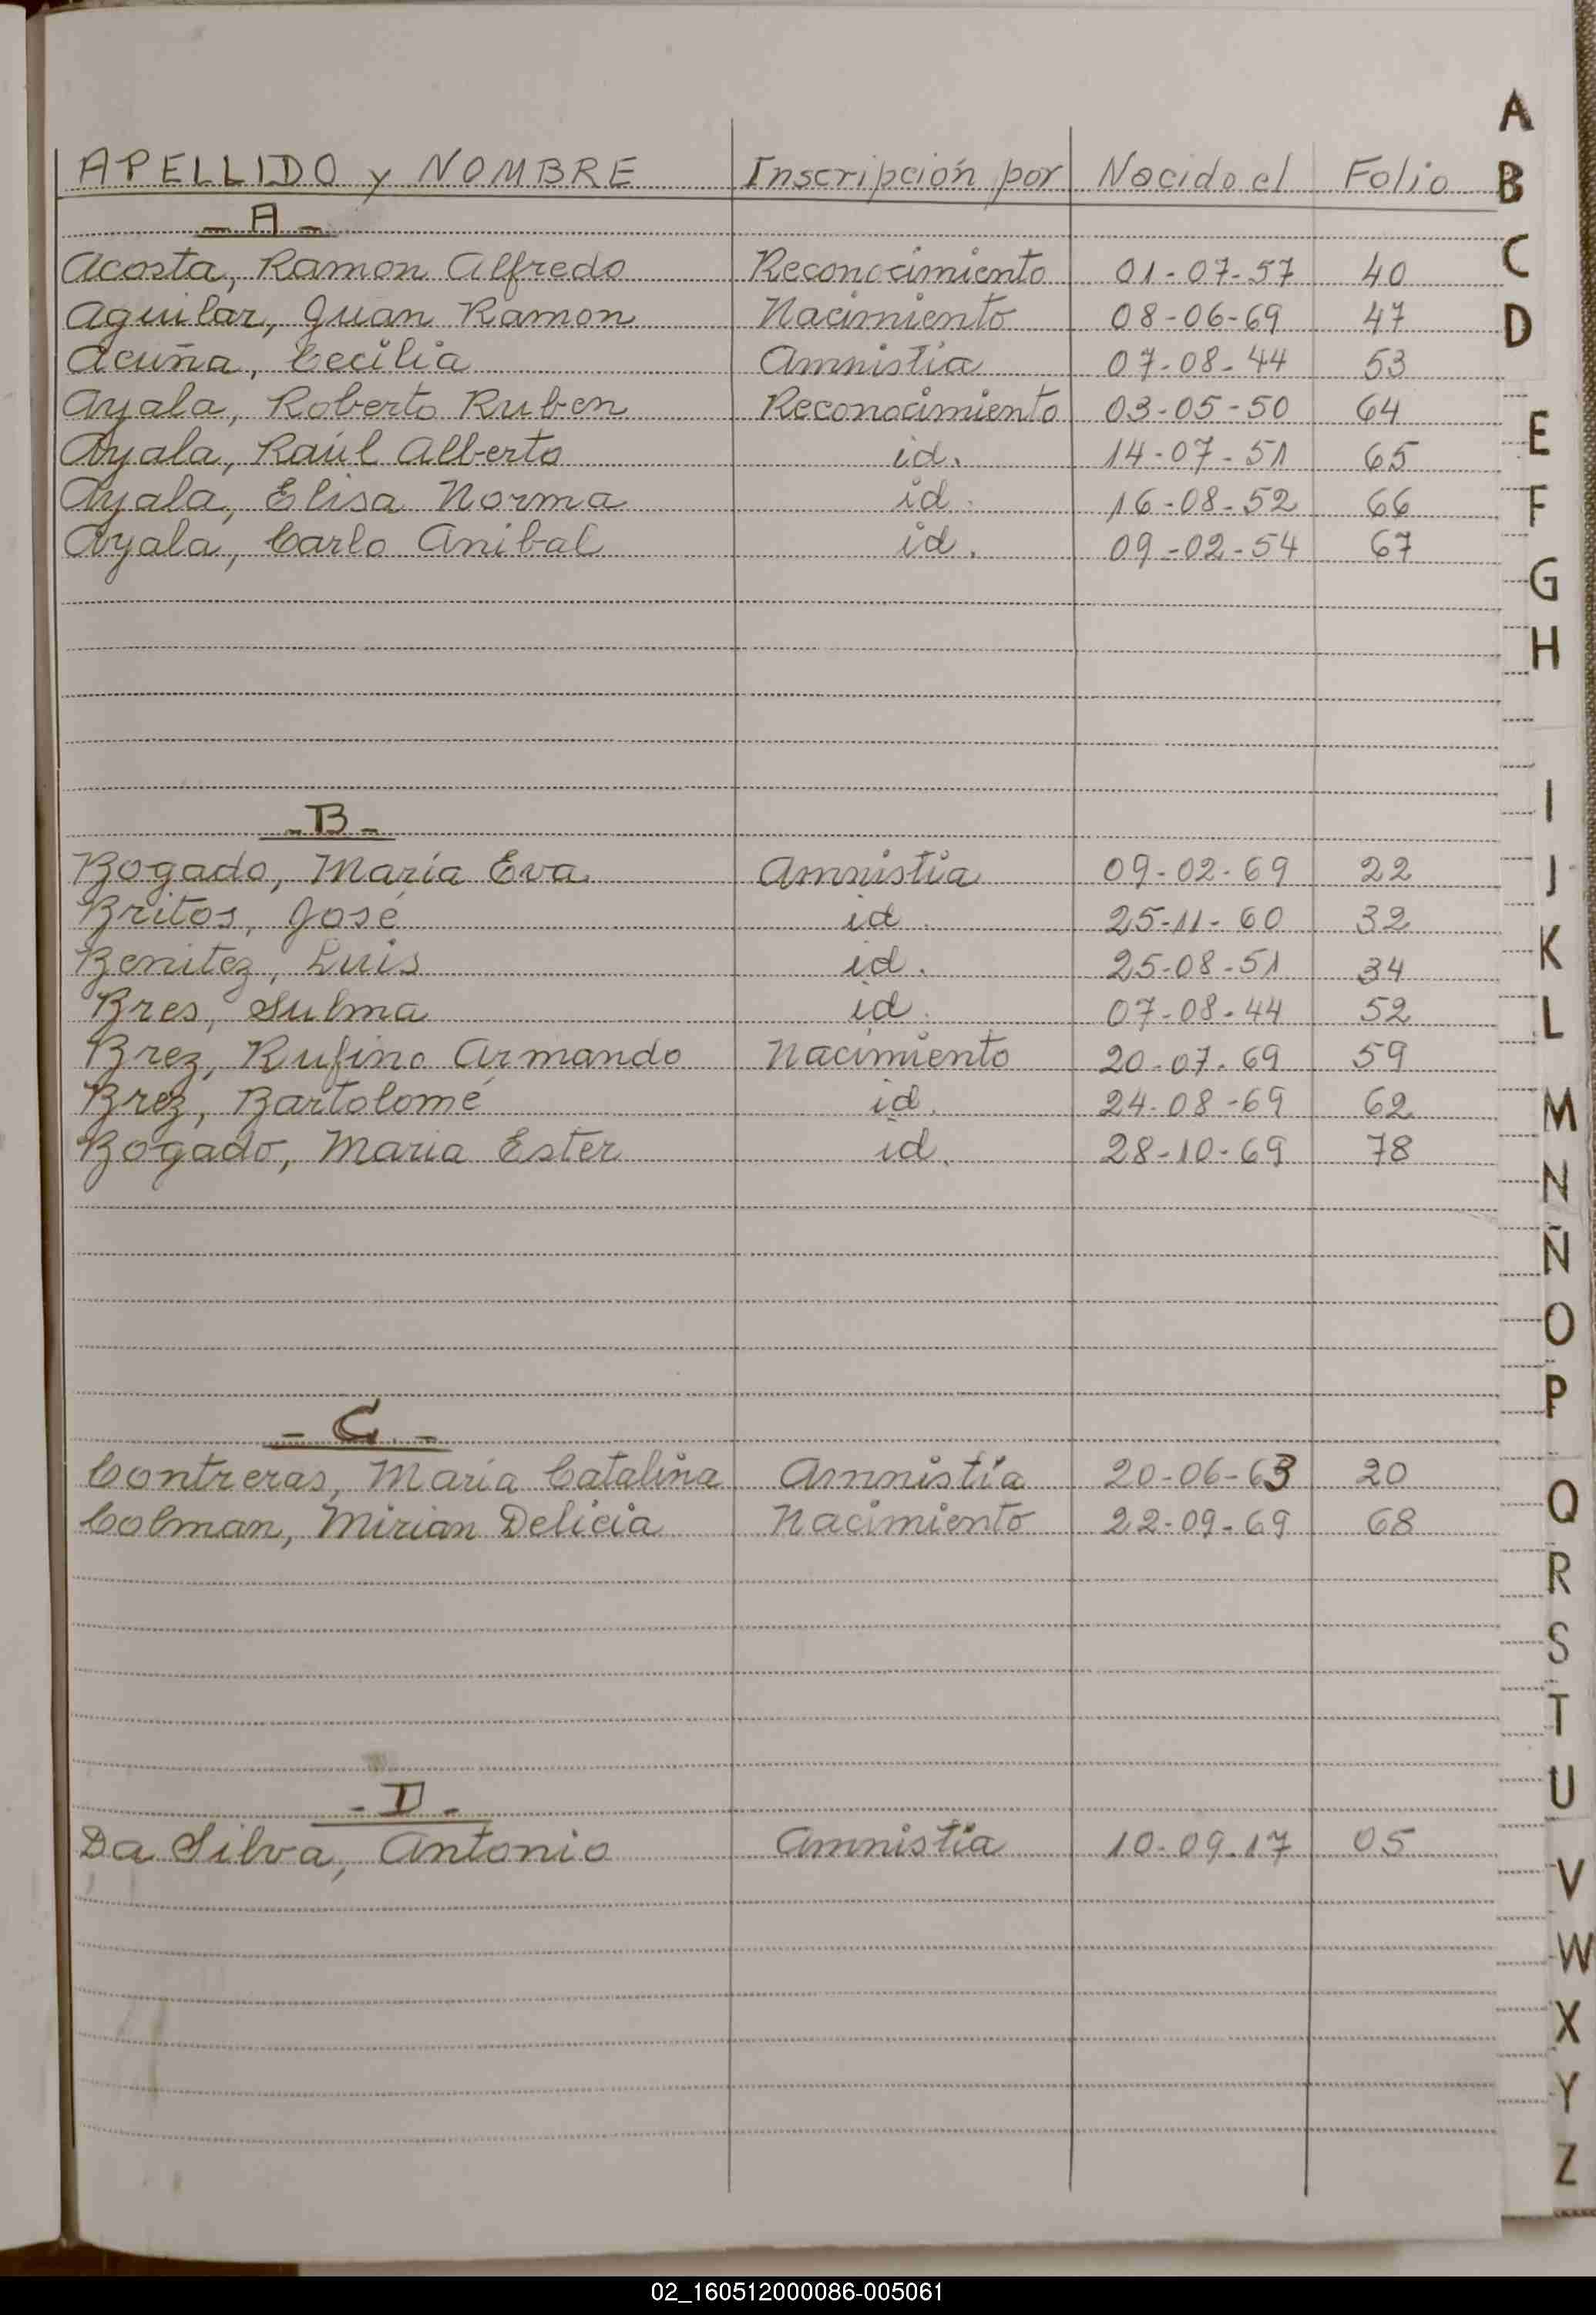 APELLIDO y NOMBRE Inscripción por Nacido el Folio
- A -
Acosta, Ramon Alfredo Reconocimiento 01-07-57 40
Aguilar, Juan Ramon Nacimiento 08-06-69 47
Acuña, Cecilia Amnistia 07-08-44 53
Ayala, Roberto Ruben Reconocimiento 03-05-50 64
Ayala, Raúl Alberto id. 14-07-51 65
Ayala, Elisa Norma id. 16-08-52 66
Ayala, Carlo Anibal id. 09-02-54 67
- B -
Bogado, María Eva Amnistia 09-02-69 22
Britos, José id. 25-11-60 32
Benitez, Luis id. 25-08-51 34
Bres, Sulma id. 07-08-44 52
Brez, Rufino Armando Nacimiento 20-07-69 59
Brez, Bartolomé id. 24-08-69 62
Bogado, Maria Ester id. 28-10-69 78
- C -
Contreras, María Catalina Amnistía 20-06-63 20
Colman, Mirian Delicia Nacimiento 22-09-69 68
- D -
Da Silva, Antonio Amnistia 10-09-17 05
A
B
C
D
E
F
G
H
I
J
K
L
M
N
Ñ
O
P
Q
R
S
T
U
V
W
X
Y
Z
02_160512000086-005061